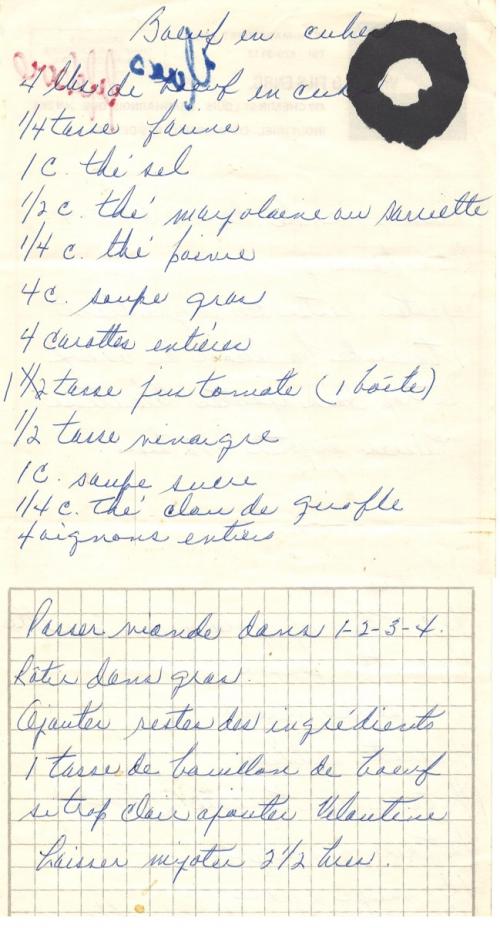 Boeuf en cubes
4 lbs de boeuf en cubes
1/4 tasse farine
1 c. thé sel
1/2 c. thé marjolaine ou sarriette
1/4 c. thé poivre
4 c. soupe gras
4 carottes entières
1 1/2 tasse jus tomate (1 boîte)
1/2 tasse vinaigre
1 c. soupe sucre
1/4 c. thé clou de girofle
4 oignons entiers
Passer viande dans 1-2-3-4.
Rôtir dans gras.
Ajouter restes des ingrédients
1 tasse de bouillon de boeuf
si trop clair ajouter Veloutine
Laisser mijoter 2 1/2 hres.